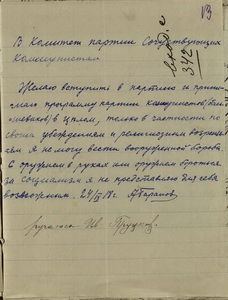 13
В Комитет партии Сочувствующих
Коммунистам.
вход с
342
Желаю вступить в партию и прини-
маю программу партии коммунистов (боль-
шевиков) в целом, только в частности по
своим убеждениям и религиозным воззре-
ниям я не могу вести вооруженной борьбы.
С оружием в руках или оружием бороться
за социализм я не представляю для себя
возможным. 24/IV 19 г.